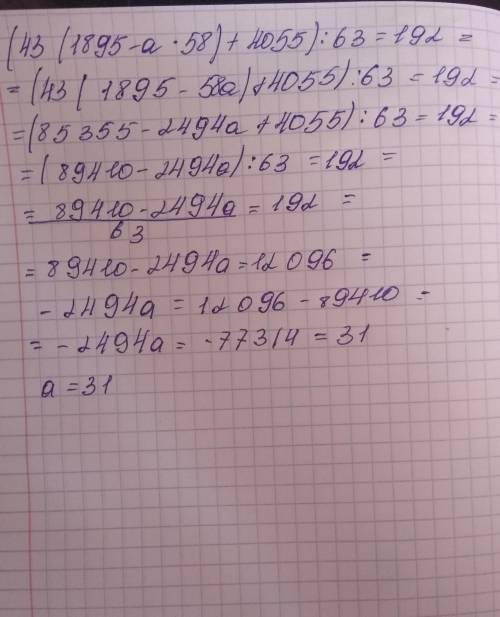 (43 (1895-a·58)+4055):63=192 =
=(43( 1895 - 58a)+4055):63 = 192 =
=(85355-2494a+4055):63=192 =
=(89410-2494a):63 =192 =
= 89410-2494a = 192 =
63
= 89410-2494a=12096 =
-2494a = 12096-89410 =
= -2494a = -77314 = 31
a=31